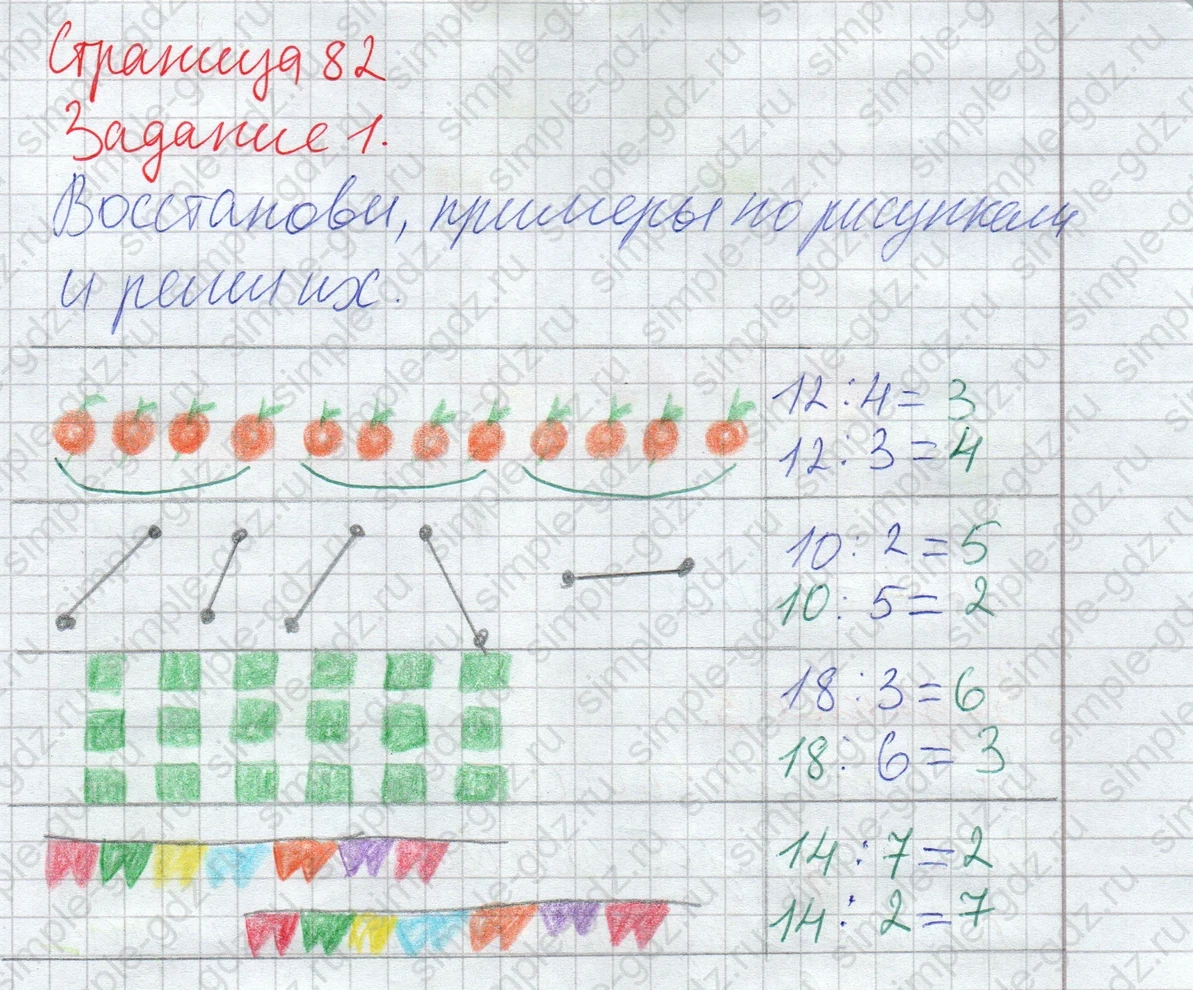 Страница 82
Задание 1.
Восстанови, примеры по рисункам
и реши их.
12 : 4 = 3
12 : 3 = 4
10 : 2 = 5
10 : 5 = 2
18 : 3 = 6
18 : 6 = 3
14 : 7 = 2
14 : 2 = 7
simple-gdz.ru